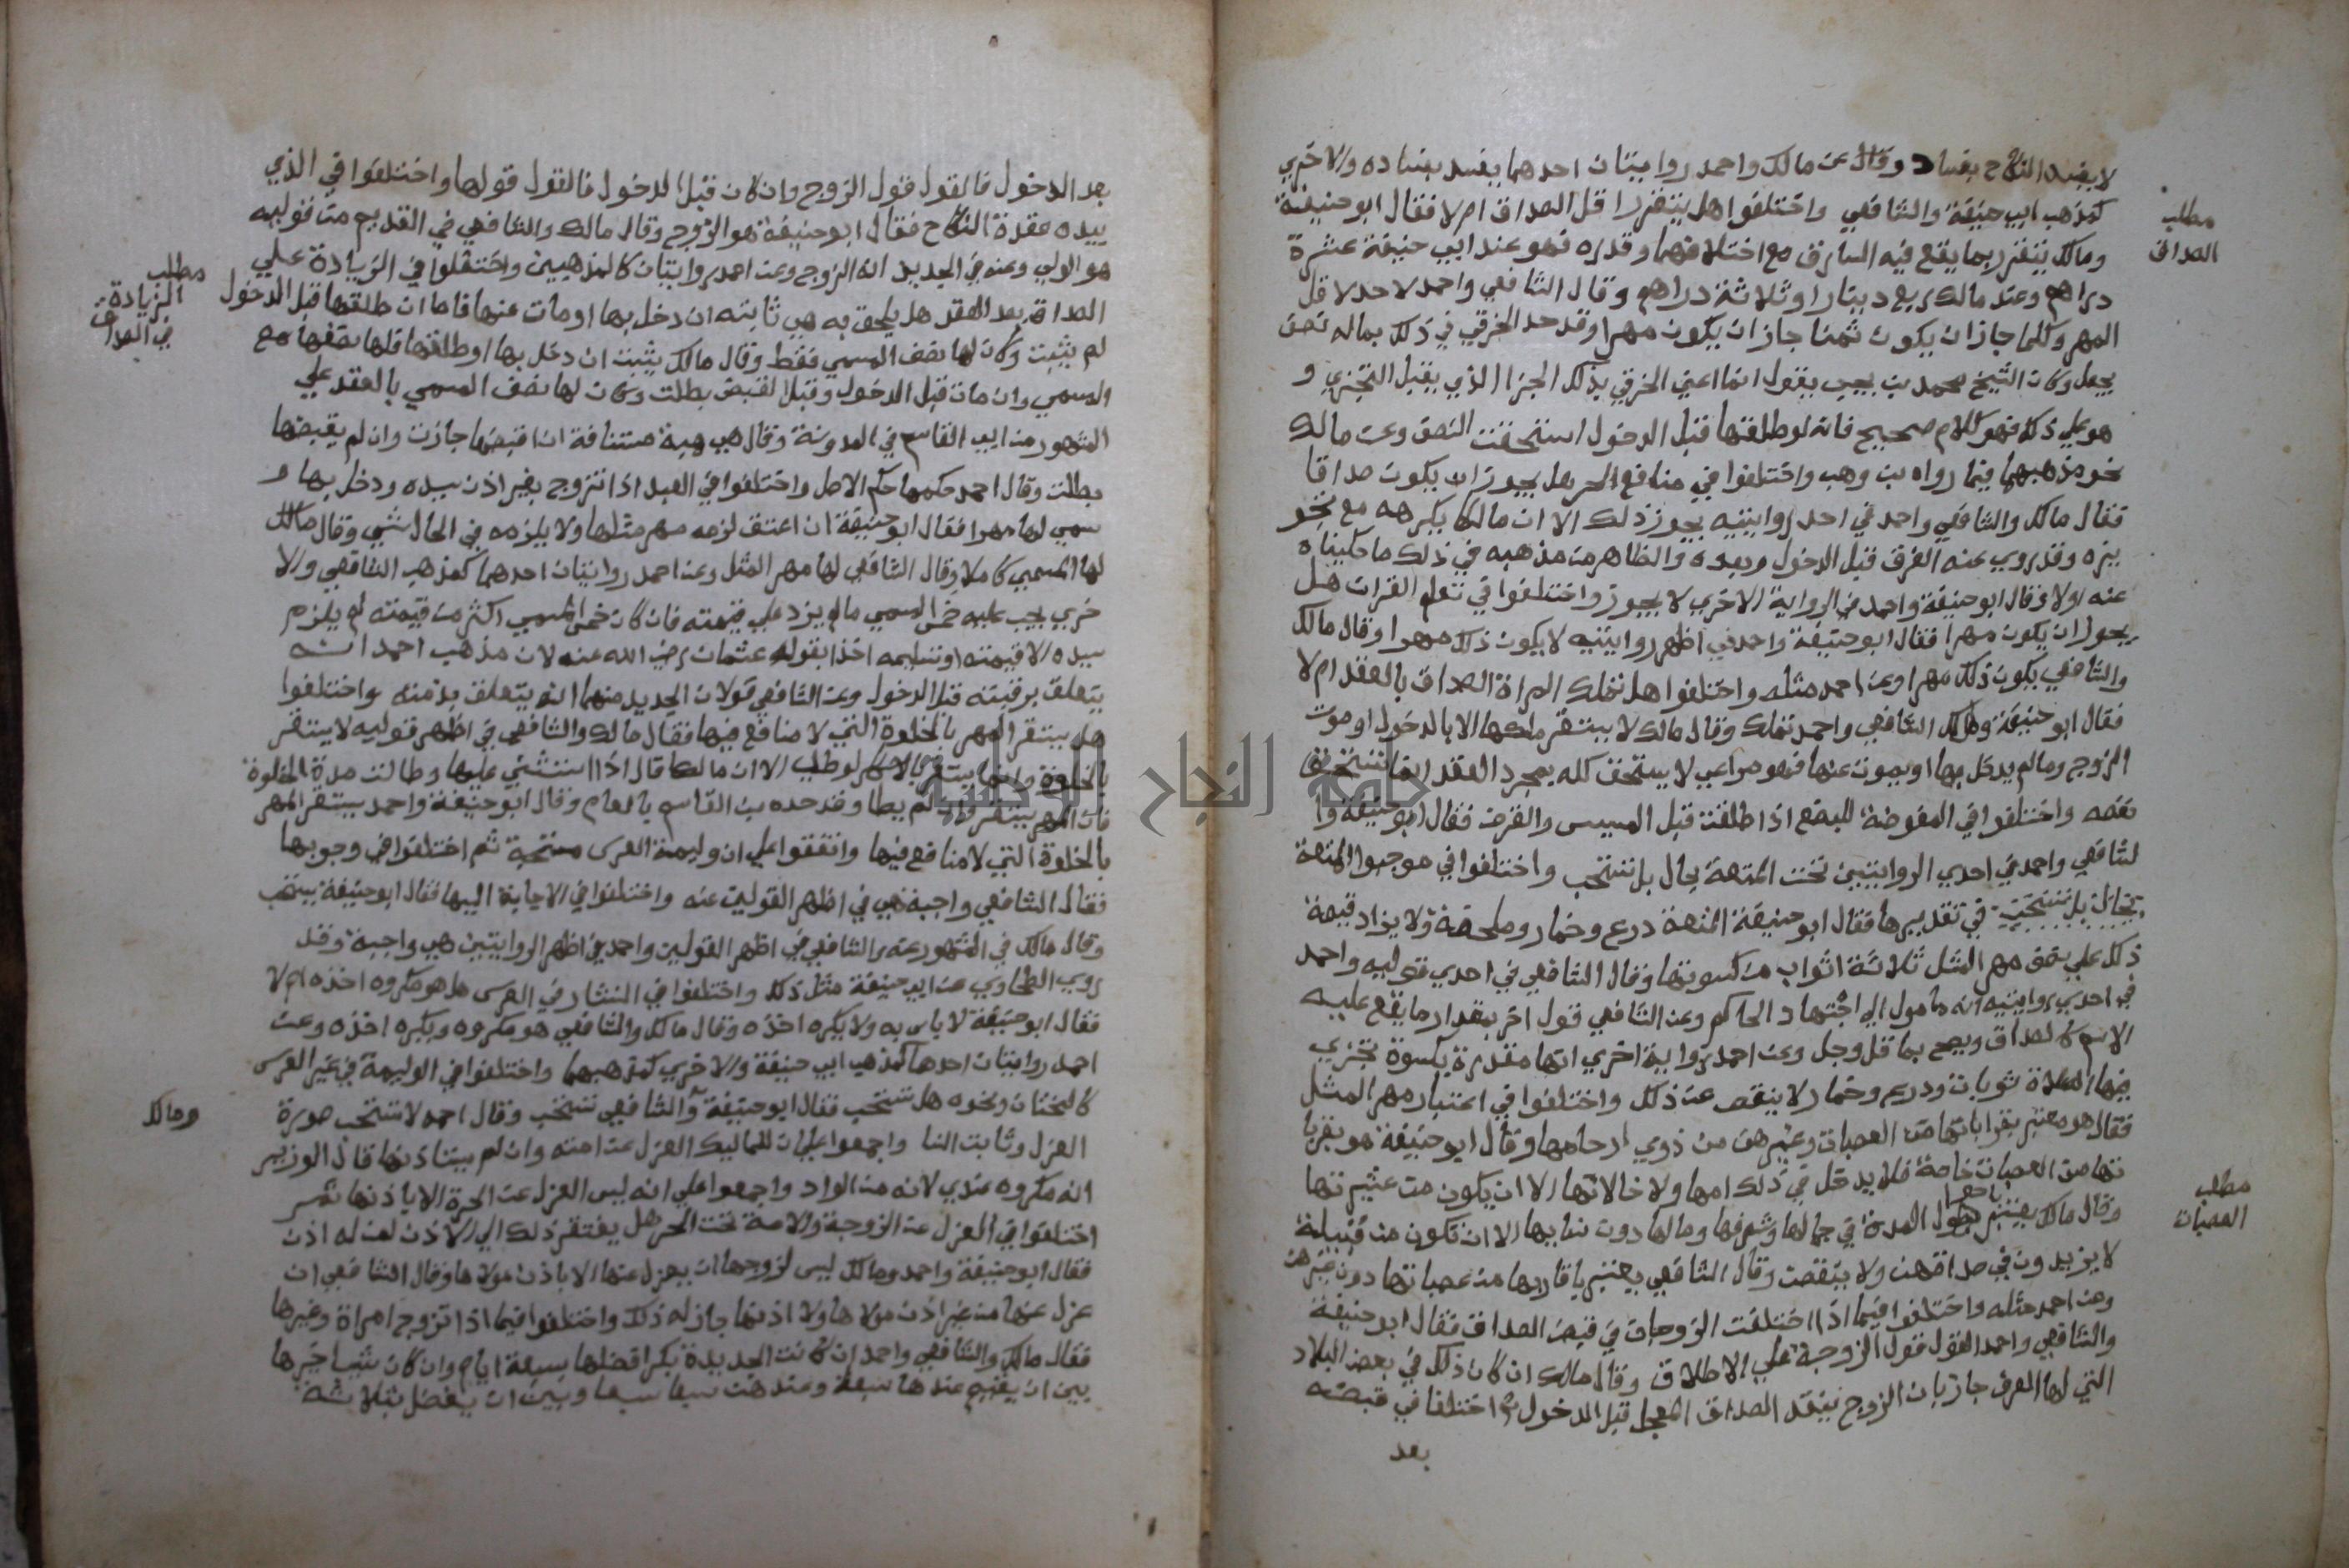 لا يفسد النكاح بفساد وقال عن مالك واحمد روايتان احدهما يفسد بفساده والاخري
كمذهب ابي حنيفة والشافعي واختلفوا هل يتقرر اقل الصداق ام لا فقال ابو حنيفة
مطلب
الصداق
ومالك يتقرر بما يقع فيه السارق مع اختلافهما وقدره فهو عند ابي حنيفة عشرة
دراهم وعند مالك ربع دينار او ثلاثة دراهم وقال الشافعي واحمد لا حد لاقل
المهر وكلما جاز ان يكون ثمنا جاز ان يكون مهرا وقد حد الخرقي في ذلك بماله نصف
يجعل وكان الشيخ محمد بن يحيى يقول انما اعني الخرقي بذلك الجزا الذي يقبل التجزي و
هو علي ذلك فهو كلام صحيح فانه لو طلقها قبل الدخول استحقت النصف وعن مالك
نحو مذهبهما فيما رواه بن وهب واختلفوا في منافع الحر هل يجوز ان يكون صداقا
فقال مالك والشافعي واحمد في احد روايتيه يجوز ذلك الا ان مالكا يكرهه مع نحو
يزه وقد روي عنه الفرق قبل الدخول وبعده والظاهر من مذهبه في ذلك ما حكيناه
عنه اولا وقال ابو حنيفة واحمد في الرواية الاخري لا يجوز واختلفوا في تعلم القران هل
يجوز ان يكون مهرا فقال ابو حنيفة واحمد في اظهر روايتيه لا يكون ذلك مهرا وقال مالك
والشافعي يكون ذلك مهرا وعن احمد مثله واختلفوا هل تملك المراة الصداق بالعقد ام لا
فقال ابو حنيفة والشافعي واحمد تملك وقال مالك لا يستقر ملكها الا بالدخول او موت
الزوج وما لم يدخل بها او يموت عنها فهو مراعي لا يستحق كله بمجرد العقد انما تستحق
نصفه واختلفوا في المفوضة للبضع اذا طلقت قبل المسيس والفرض فقال ابو حنيفة وا
لشافعي واحمد في احدي الروايتين تحت المتعة بحال بل تستحب واختلفوا في موجبوا المتعة
بحال بل تستحب في تقديرها فقال ابو حنيفة المتعة درع وخمار وملحفة ولا يزاد قيمة
ذلك علي نصف مهر المثل ثلاثة اثواب من كسوتها وقال الشافعي في احدي قوليه واحمد
في احدي روايتيه انه مامول الي اجتهاد الحاكم وعن الشافعي قول اخر بمقدار ما يقع عليه
الاسم كالصداق ويصح بما قل وجل وعن احمد رواية اخري انها مقدرة بكسوة تجزي
فيها الصلاة ثوبان ودرع وخمار لا ينقص عن ذلك واختلفوا في اعتبار مهر المثل
فقال هو معتبر بقراباتها من العصبات وغيرهن من ذوي ارحامها وقال ابو حنيفة هو بقربا
تها من العصبات خاصة فلا يدخل في ذلك امها ولا خالاتها الا ان يكون من عشيرتها
مطلب
العصبات
وقال مالك يعتبر باحوال المراة في جمالها وشرفها ومالها دون نسابها الا ان تكون من قبيلة
لا يزيدون في صداقهن ولا ينقصن وقال الشافعي يعتبر باقاربها من عصباتها دون غيرهن
وعن احمد مثله واختلفوا فيما اذا اختلفت الزوجان في قبض الصداق فقال ابو حنيفة
والشافعي واحمد القول قول الزوجة علي الاطلاق وقال مالك ان كان ذلك في بعض البلاد
التي لها العرف جار بان الزوج ينقد الصداق المعجل قبل الدخول ثم اختلفا في قبضه
بعد
بعد الدخول فالقول قول الزوج وان كان قبل الدخول فالقول قولها واختلفوا في الذي
بيده عقدة النكاح فقال ابو حنيفة هو الزوج وقال مالك والشافعي في القديم من قوليه
هو الولي وعنه في الجديد انه الزوج وعن احمد روايتان كالمذهبين واختلفوا في الزيادة علي
مطلب
الزيادة
في الصداق
الصداق بعد العقد هل يلحق به هي ثابته ان دخل بها او مات عنها فاما ان طلقها قبل الدخول
لم يثبت وكان لها نصف المسمي فقط وقال مالك يثبت ان دخل بها او طلقها فلها نصفها مع
المسمي وان مات قبل الدخول وقبل القبض بطلت وكان لها نصف المسمي بالعقد علي
المشهور من ابي القاسم في المدونة وقال هي هبة مستنافة ان اقبضها جازت وان لم يقبضها
بطلت وقال احمد حكمها حكم الاصل واختلفوا في العبد اذا تزوج بغير اذن سيده ودخل بها و
سمي لها مهرا فقال ابو حنيفة ان اعتق لزمه مهر مثلها ولا يلزمه في الحال شي وقال مالك
لها المسمي كاملا وقال الشافعي لها مهر المثل وعن احمد روايتان احدهما كمذهب الشافعي والا
خري يجب عليه خمس المسمي مالم يزد علي قيمته فان كان خمس المسمي اكثر من قيمته لم يلزم
سيده الا قيمته او تسليمه اخذا بقوله عثمان رضي الله عنه لان مذهب احمد انه
يتعلق برقبته قبل الدخول وعن الشافعي قولان الجديد منهما انه يتعلق بذمته واختلفوا
هل يستقر المهر بالخلوة التي لا منافع فيها فقال مالك والشافعي في اظهر قوليه لا يستقر
بالخلوة وانما يستقر الا ان مالكا قال اذا استثني عليها وطالت مدة الخلوة
فان المهر يستقر وان لم يطا وقد حده بن القاسم بالعام وقال ابو حنيفة واحمد يستقر المهر
بالخلوة التي لا منافع فيها واتفقوا علي ان وليمة العرس مستحبة ثم اختلفوا في وجوبها
فقال الشافعي واجبة هي في اظهر القولين عنه واختلفوا في الاجابة اليها فقال ابو حنيفة يستحب
وقال مالك في المشهور عنه والشافعي في اظهر القولين واحمد في اظهر الروايتين هي واجبة وقد
روي الطحاوي عن ابي حنيفة مثل ذلك واختلفوا في النثار في العرس هل هو مكروه اخذه ام لا
فقال ابو حنيفة لا باس به ولا يكره اخذه وقال مالك والشافعي هو مكروه ويكره اخذه وعن
احمد روايتان احدها كمذهب ابي حنيفة والاخري كمذهبهما واختلفوا في الوليمة في غير العرس
كالختان ونحوه هل تستحب فقال ابو حنيفة والشافعي تستحب وقال احمد لا تستحب صورة
ومالك
العزل وثابت النسا واجمعوا علي ان للماليك العزل عن امته وان لم يستاذنها قال الوزير
انه مكروه عندي لانه من الواد واجمعوا علي انه ليس العزل عن الحرة الا باذنها ثم
اختلفوا في العزل عن الزوجة والامة تحت الحر هل يفتقر ذلك الي الاذن لمن له اذن
فقال ابو حنيفة واحمد ومالك ليس لزوجها ان يعزل عنها الا باذن مولاها وقال الشافعي ان
عزل عنها من غير اذن مولاها ولا اذنها جاز له ذلك واختلفوا فيما اذا تزوج امراة وغيرها
فقال مالك والشافعي واحمد ان كانت الجديدة بكرا فضلها بسبعة ايام وان كان ثيبا خيرها
بين ان يقيم عندها سبعة وعندهن سبعا سبعا وبين ان يفضل بثلاثة
جامعة النجاح الوطنية